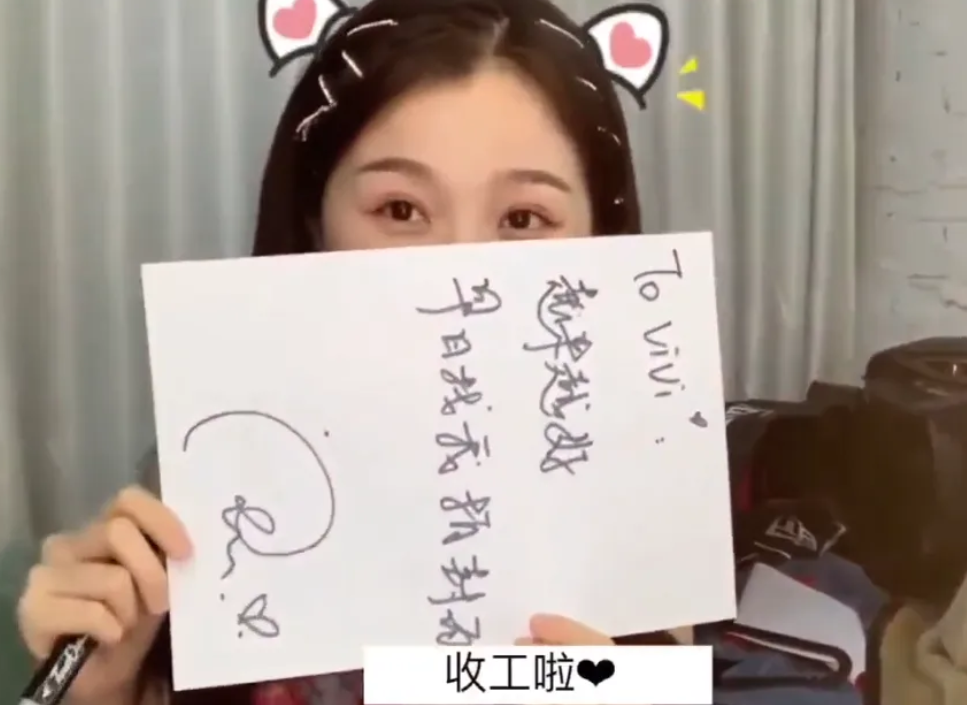 To vivi
越来越好
早日找我拍封面
收工啦❤